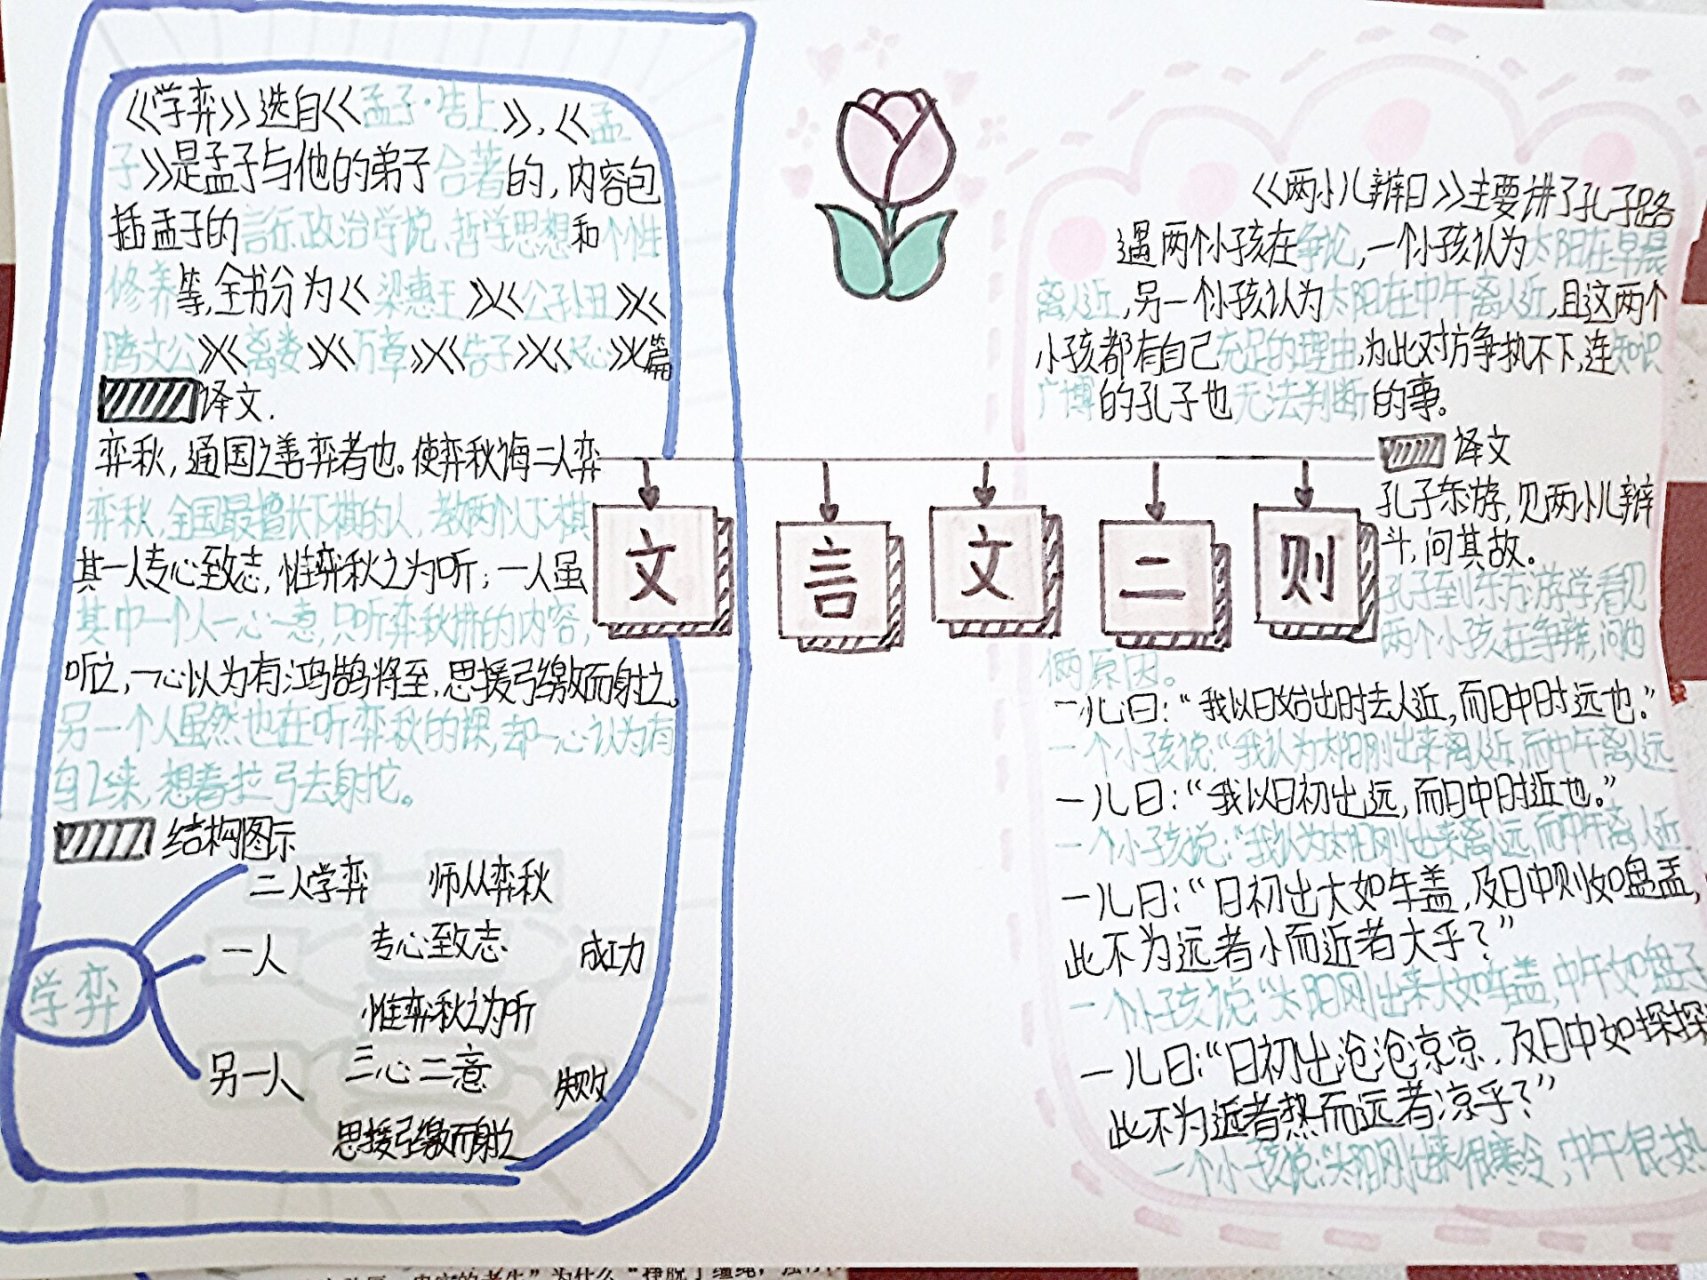 《学弈》选自《孟子·告上》,《孟
子》是孟子与他的弟子合著的,内容包
括孟子的言行、政治学说、哲学思想和个性
修养等,全书分为《梁惠王》《公孙丑》《
腾文公》《离娄》《万章》《告子》《尽心》七篇
译文.
弈秋,通国之善弈者也。使弈秋诲二人弈
弈秋,全国最擅长下棋的人,教两个人下棋
其一人专心致志,惟弈秋之为听;一人虽
其中一个人一心一意,只听弈秋讲的内容,
听之,一心以为有鸿鹄将至,思援弓缴而射之。
另一个人虽然也在听弈秋的课,却一心认为有
鸟飞来,想着拉弓去射它。
结构图示
学弈
二人学弈 师从弈秋
一人 专心致志 成功
惟弈秋之为听
另一人 三心二意 失败
思援弓缴而射之
文言文二则
《两小儿辩日》主要讲了孔子路
遇两个小孩在争论,一个小孩认为太阳在早晨
离人近,另一个小孩认为太阳在中午离人近,且这两个
小孩都有自己充足的理由,为此对方争执不下,连知识
广博的孔子也无法判断的事。
译文
孔子东游,见两小儿辩
斗,问其故。
孔子到东方游学看见
两个小孩在争辩,问他
俩原因。
一儿曰:“我以日始出时去人近,而日中时远也。”
一个小孩说:“我认为太阳刚出来离人近,而中午离人远
一儿曰:“我以日初出远,而日中时近也。”
一个小孩说:“我认为太阳刚出来离人远,而中午离人近
一儿曰:“日初出大如车盖,及日中则如盘盂,
此不为远者小而近者大乎?”
一个小孩说:“太阳刚出来大如车盖,中午如盘子
一儿曰:“日初出沧沧凉凉,及日中如探探
此不为近者热而远者凉乎?”
一个小孩说:“太阳刚出来很寒冷,中午很热